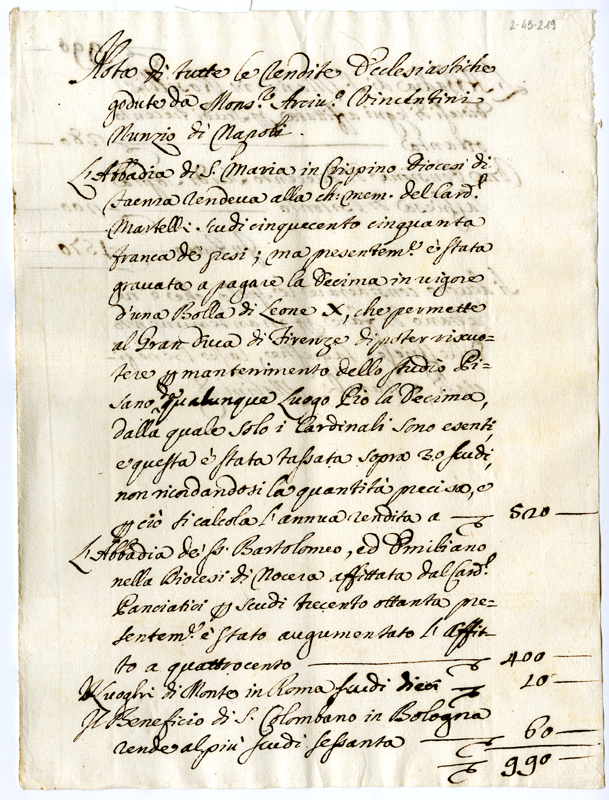 2-45-219
Nota di tutte le Rendite Ecclesiastiche
godute da Mons.r Arciv.o Vincentini
Nunzio di Napoli.
L'Abbadia di S. Maria in Crispino Diocesi di
Faenza rendeva alla ch: mem. del Card.l
Martelli scudi cinquecento cinquanta
franca de pesi; ma presentem.e è stata
gravata a pagare la Decima in vigore
d'una Bolla di Leone X, che permette
al Gran Duca di Firenze di poter riscuo=
tere p mantenimento dello studio Pi=
sano da qualunque Luogo Pio la Decima,
dalla quale solo i Cardinali sono esenti,
e questa è stata tassata sopra 30 scudi,
non ricordandosi la quantità precisa, e
p ciò si calcola l'annua rendita a — 520 —
L'Abbadia de' SS. Bartolomeo, ed Emiliano
nella Diocesi di Nocera affittata dal Card.l
Panciatici p scudi trecento ottanta pre=
sentem.e è stato augumentato l'affit=
to a quattrocento — 400 —
Luoghi di Monte in Roma scudi dieci — 10 —
Il Beneficio di S. Colombano in Bologna
rende al più scudi sessanta — 60 —
990 —